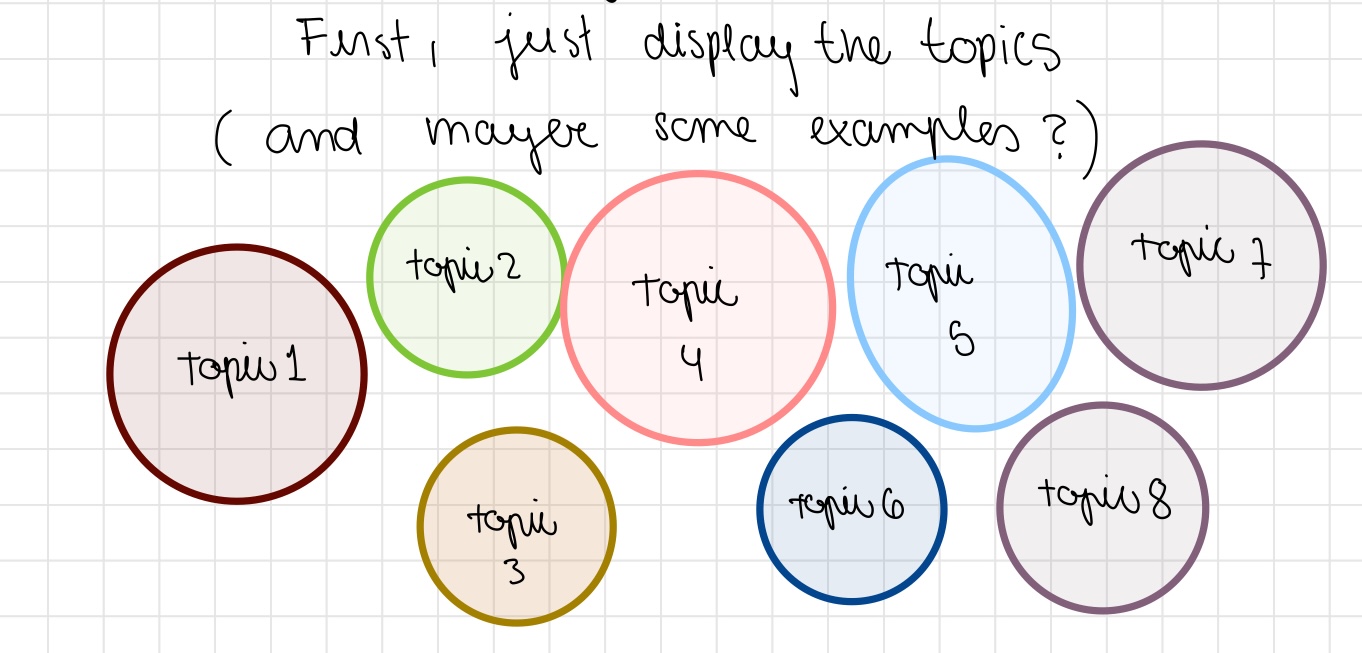 First, just display the topics
(and maybe some examples?)
topic 1
topic 2
topic
3
topic
4
topic
5
topic 6
topic 7
topic 8